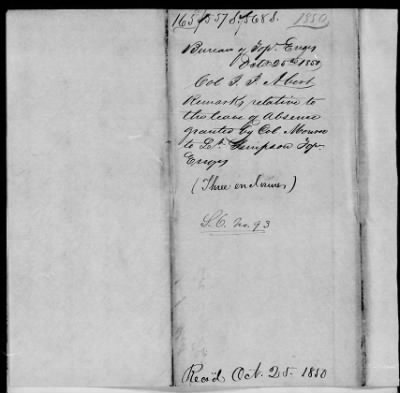 1850
Bureau of Topl. Engrs
Oct. 25th 1850
Col J. J. Abert
Remarks relative to
the leave of absence
granted by Col Monroe
to Lt. Simpson Top.
Engrs
(Three enclosures)
S.O. No. 93
Rec'd Oct. 25. 1850